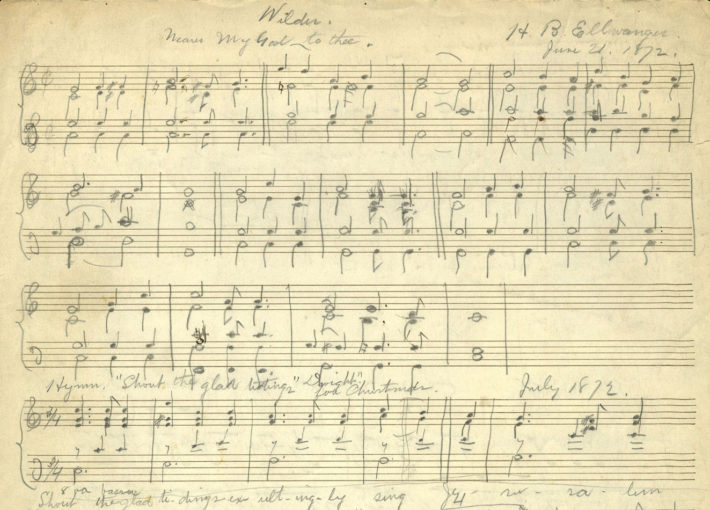 Wilder.
Nearer My God to thee.
H. B. Ellwanger
June 21. 1872.
Hymn. "Shout the glad tidings" "Dwight" for Christmas.
July 1872.
3/4
3/4
8va
Shout the glad ti-dings ex-ult-ing-ly sing Je-ru-sa-lem